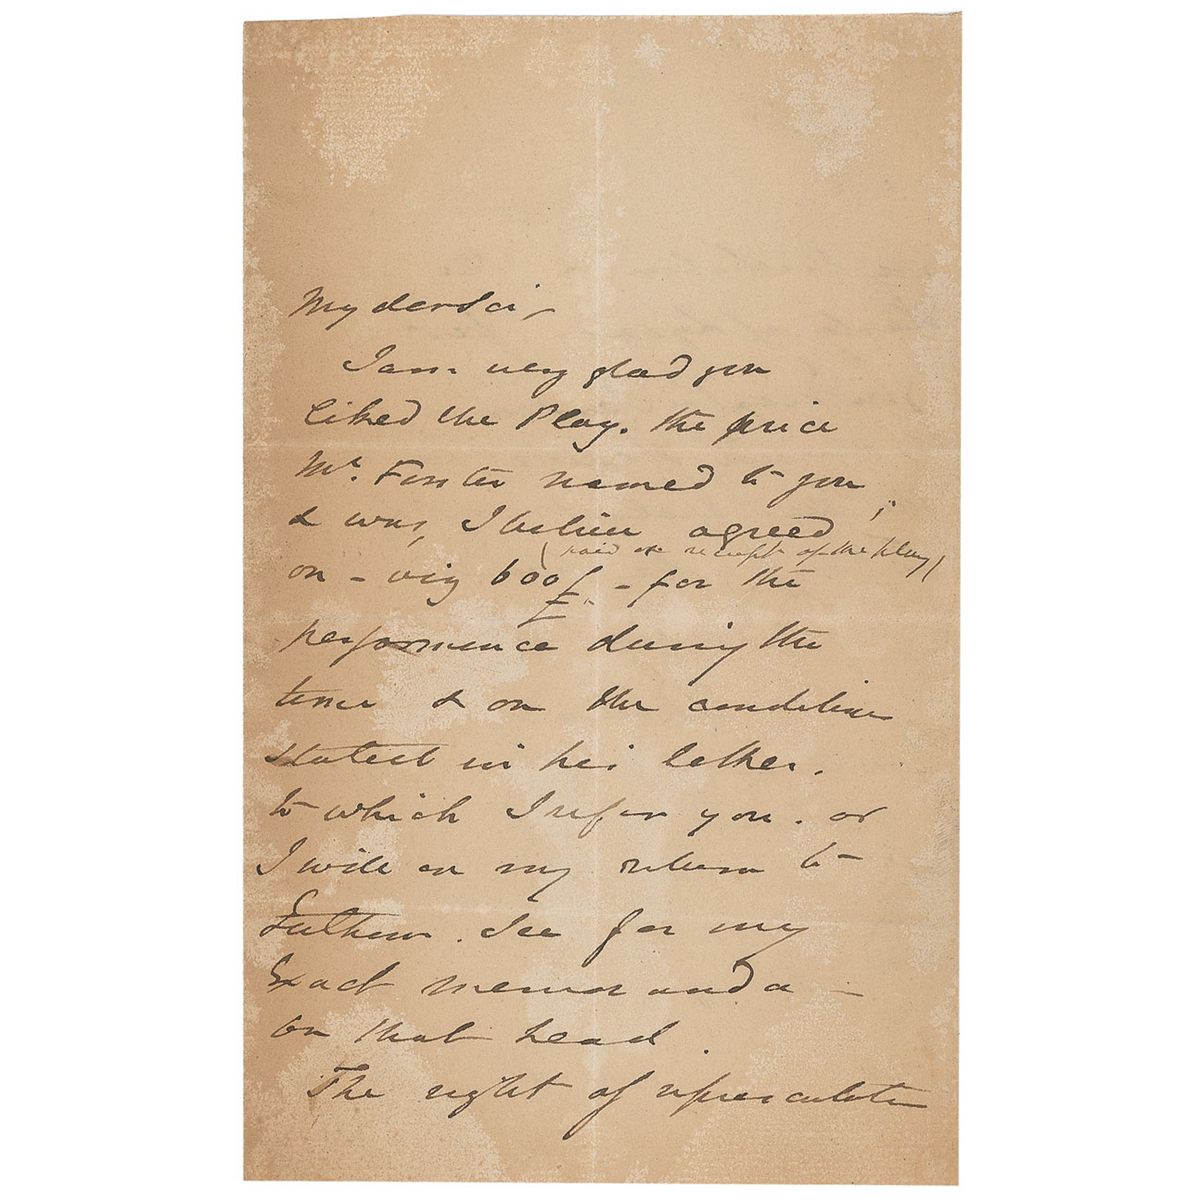 My dear Sir,
I am very glad you
liked the Play. The price
Mr. Forster named to you,
& was, I believe agreed
(paid on receipt of the Play)
on - viz 600£ - for the
performance during the
time & on the conditions
stated in his letter.
to which I refer you. or
I will on my return to
See for my
Exact memoranda -
on that head.
The right of representation